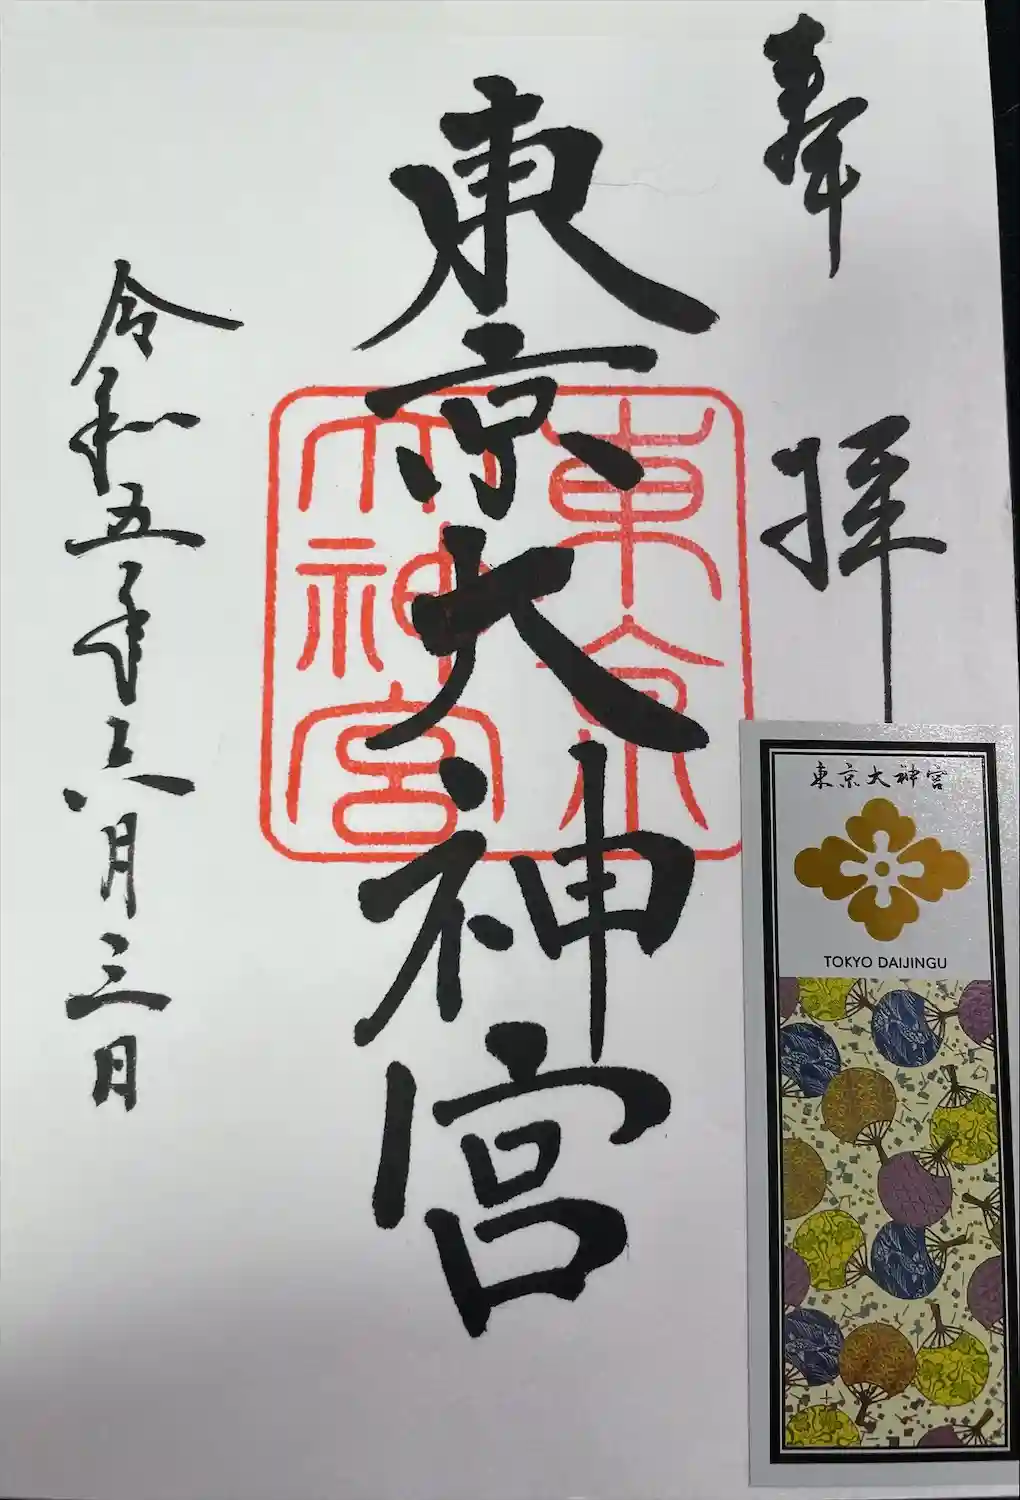 奉拝
東京大神宮
東京
大神宮
令和五年六月三日
東京大神宮
TOKYO DAIJINGU